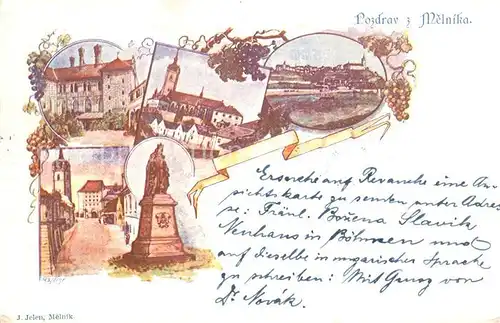 Pozdrav z Mělníka.
Ersuche auf Revanche eine An-
sichtskarte zu senden unter Adres-
se: Fräul. Božena Slavik
Neuhaus in Böhmen und
auf dieselbe in ungarischer Sprache
zu schreiben: Mit Gruß von
Dr. Novák.
J. Jelen, Mělník.